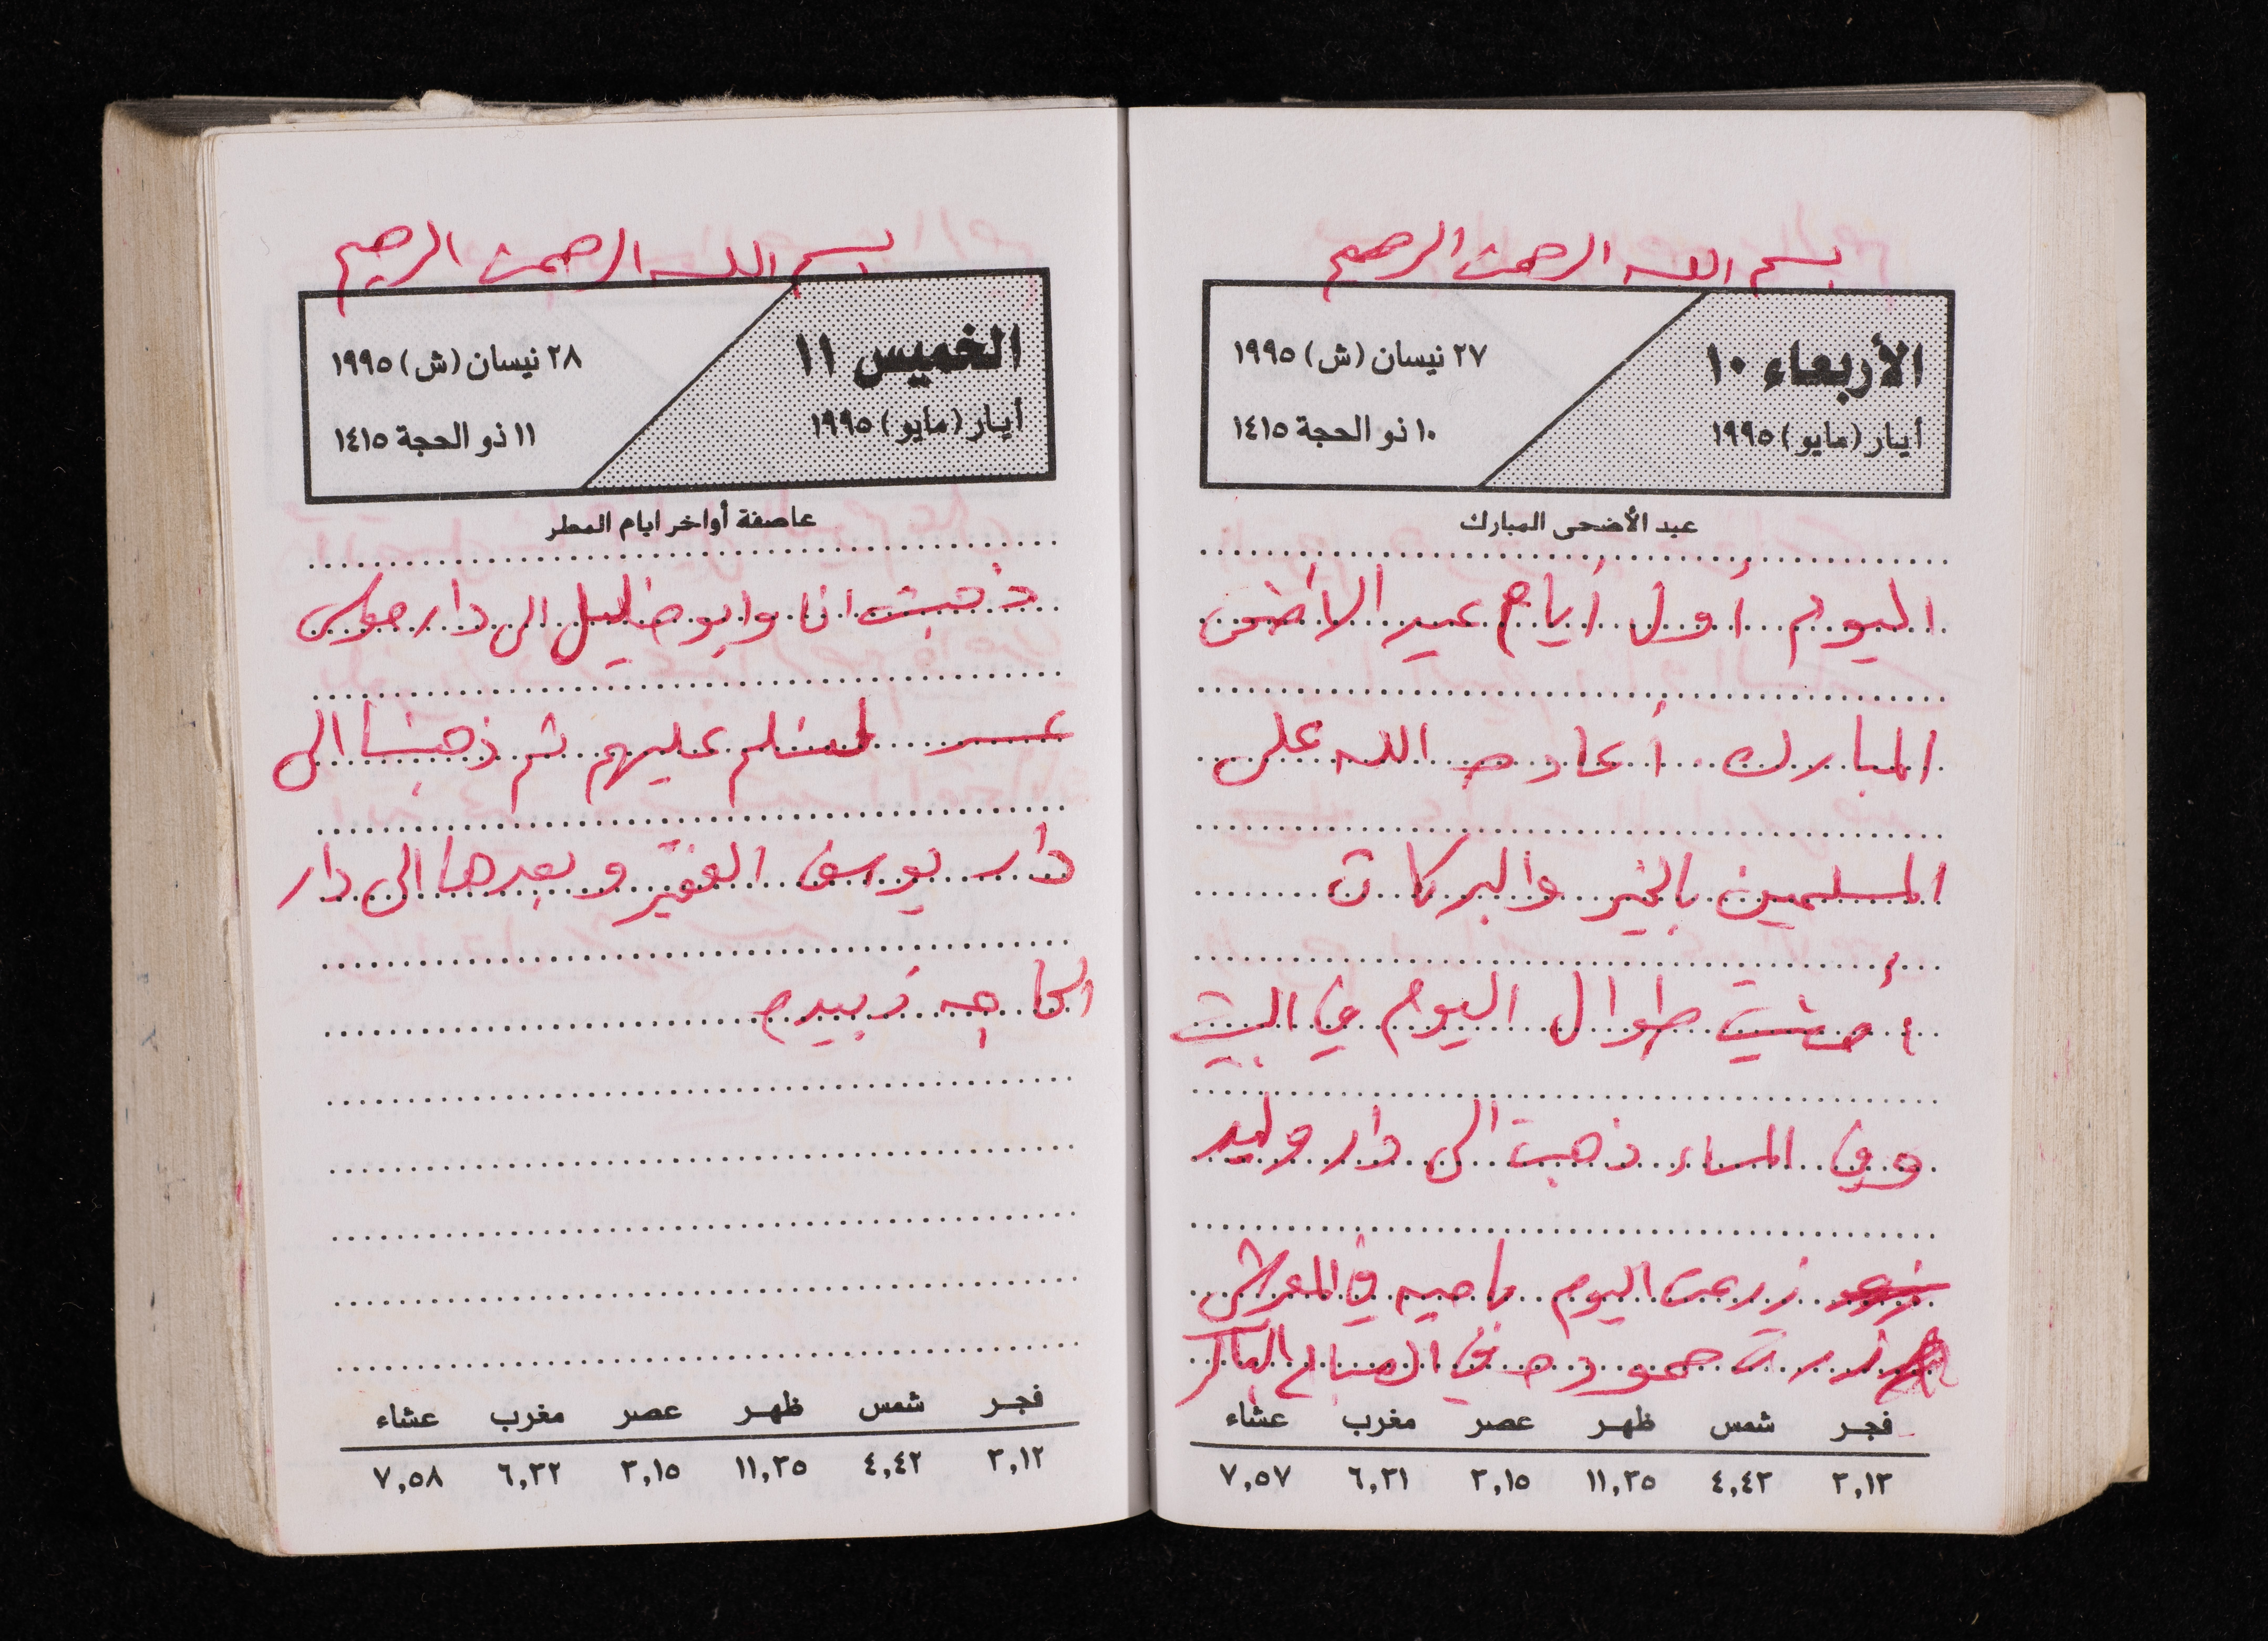 بسم الله الرحمن الرحيم
الأربعاء ١٠
أيار (مايو) ١٩٩٥
٢٧ نيسان (ش) ١٩٩٥
١٠ ذو الحجة ١٤١٥
عيد الأضحى المبارك
اليوم أول أيام عيد الأضحى
المبارك أعاده الله على
المسلمين بالخير والبركات
أمضيت طوال اليوم في البيت
وفي المساء ذهبت الى دار وليد
زرعت اليوم باميه في المعرش
زرت حموده في الصباح الباكر
فجر شمس ظهر عصر مغرب عشاء
٣,١٣ ٤,٤٣ ١١,٣٥ ٣,١٥ ٦,٣١ ٧,٥٧
بسم الله الرحمن الرحيم
الخميس ١١
أيار (مايو) ١٩٩٥
٢٨ نيسان (ش) ١٩٩٥
١١ ذو الحجة ١٤١٥
عاصفة أواخر ايام المطر
ذهبت انا وابو خليل الى دار موسى
لنسلم عليهم ثم ذهبنا الى
دار يوسف الفقير وبعدها الى دار
الحاجه زبيده
فجر شمس ظهر عصر مغرب عشاء
٣,١٢ ٤,٤٢ ١١,٣٥ ٣,١٥ ٦,٣٢ ٧,٥٨